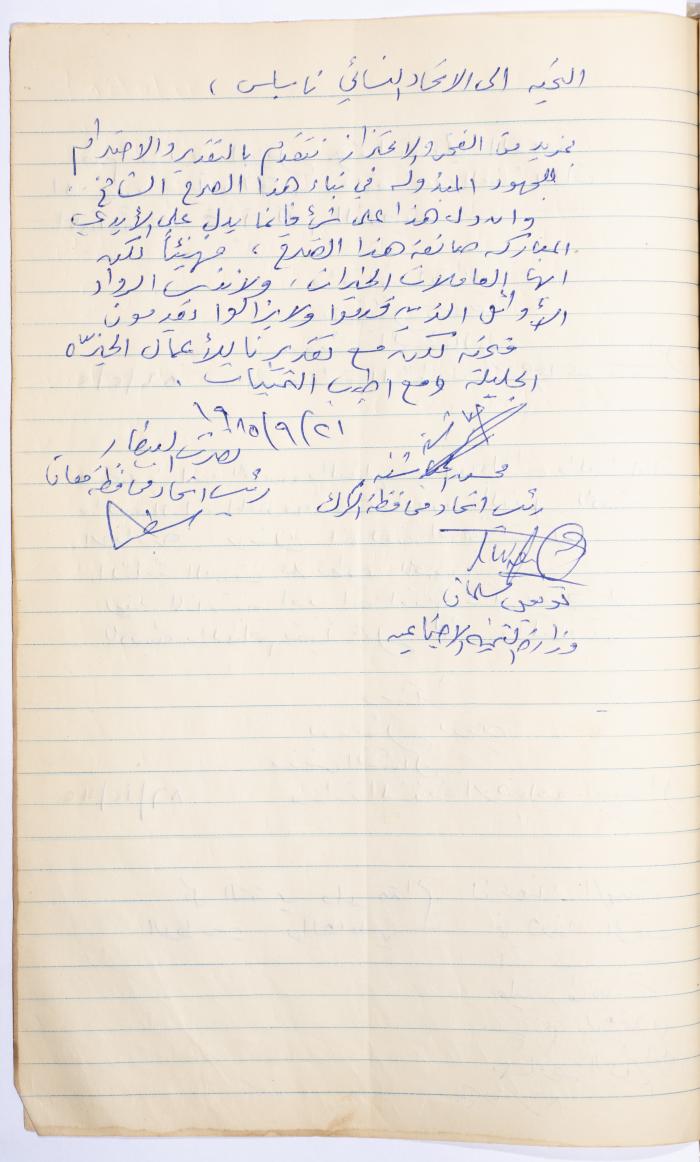 التحية الى الاتحاد النسائي نابلس ،
بمزيد من الفخر والاعتزاز نتقدم بالتقدير والاحترام
للجهود المبذوله في بناء هذا الصرح الشامخ
وان دل هذا على شئ فإنما يدل على الأيدي
المباركه صانعة هذا الصرح ، فهنيئاً لكن
ايتها العاملات الخيرات ، ولا ننسى الرواد
الأوائل الذين قدموا ولا يزالوا يقدمون
فتحية لكن مع تقديرنا للأعمال الخيره
الجليلة ومع اطيب التمنيات .
١٩٨٥/٩/٢١
محمد
رئيس اتحاد محافظة الكرك
نصرت البيطار
رئيس اتحاد محافظة معان
توفيق سلمان
وزارة التنميه الاجتماعيه